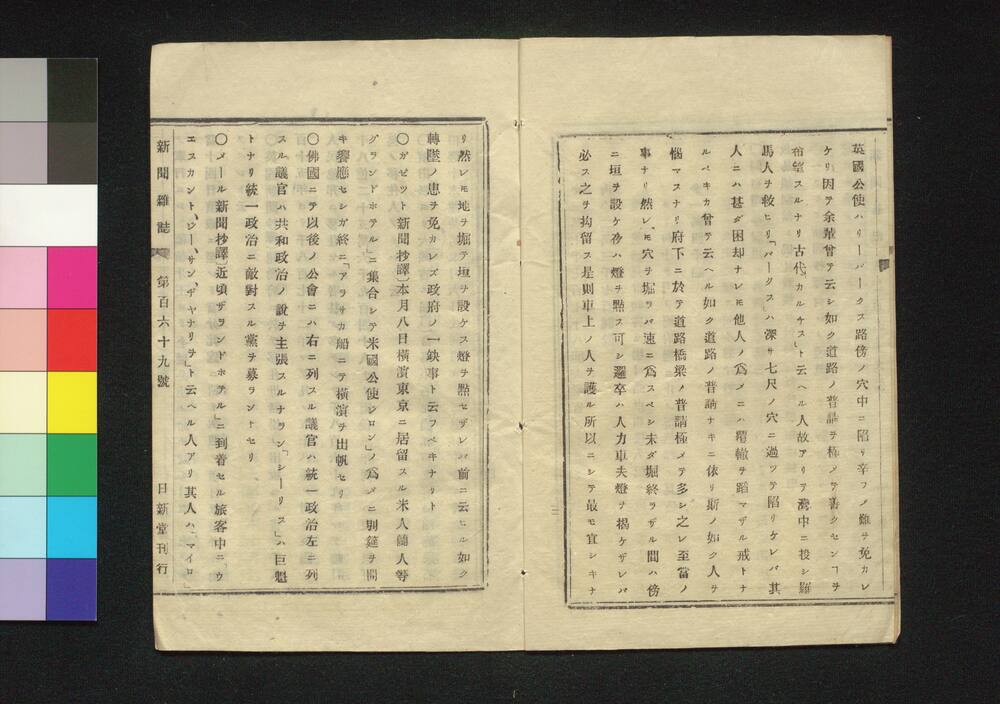 英國公使ハリーパークス路傍ノ穴中ニ陷リ辛フシテ難ヲ免カレ
ケリ因テ余輩曾テ云シ如ク道路ノ普請ヲ極メテ善クセンヿヲ
希望スルナリ古代「カルチス」ト云ヘル人故アリテ灣中ニ投シ羅
馬人ヲ救ヒリ「パークス」ハ深サ七尺ノ穴ニ過ツテ陷リケレバ其
人ニハ甚ダ困却ナレ𪜈他人ノ爲メニハ覆轍ヲ蹈マザル戒トナ
ルベキカ曾テ云ヘル如ク道路ノ普請ナキニ依リ斯ノ如ク人ヲ
惱マスナリ府下ニ於テ道路橋梁ノ普請極メテ多シ之レ至當ノ
事ナリ然レ𪜈穴ヲ堀ラバ速ニ爲スベシ未ダ堀終ラザル間ハ傍
ニ垣ヲ設ケ夜ハ燈ヲ點ス可シ邏卒ハ人力車夫燈ヲ揭ケザレバ
必ス之ヲ拘留ス是則車上ノ人ヲ護ル所以ニシテ最モ宜シキナ
リ然レ𪜈地ヲ堀テ垣ヲ設ケス燈ヲ點セザレバ前ニ云ヒル如ク
轉墜ノ患ヲ免カレズ政府ノ一缺事ト云フベキナリト
〇ガゼット新聞抄譯〕本月八日橫濱東京ニ居留スル米人蘭人等
グランドホテル」ニ集合シテ米國公使デロン」ノ爲メニ別筵ヲ開
キ饗應セシガ終ニ「アラサカ船ニテ橫濱ヲ出帆セリ
〇佛國ニテ以後ノ公會ニハ右ニ列スル議官ハ統一政治左ニ列
スル議官ハ共和政治ノ說ヲ主張スルナラン「シーリス」ハ巨魁
トナリ統一政治ニ敵對スル黨ヲ募ラントセリ
〇メール新聞抄譯〕近頃ザランドホテル」ニ到着セル旅客中ニ、ウ
エスカント、ジー、サン、ザヤナリヲ」ト云ヘル人アリ其人ハ「マイロ」
新聞雜誌 第百六十九號 日新堂刊行